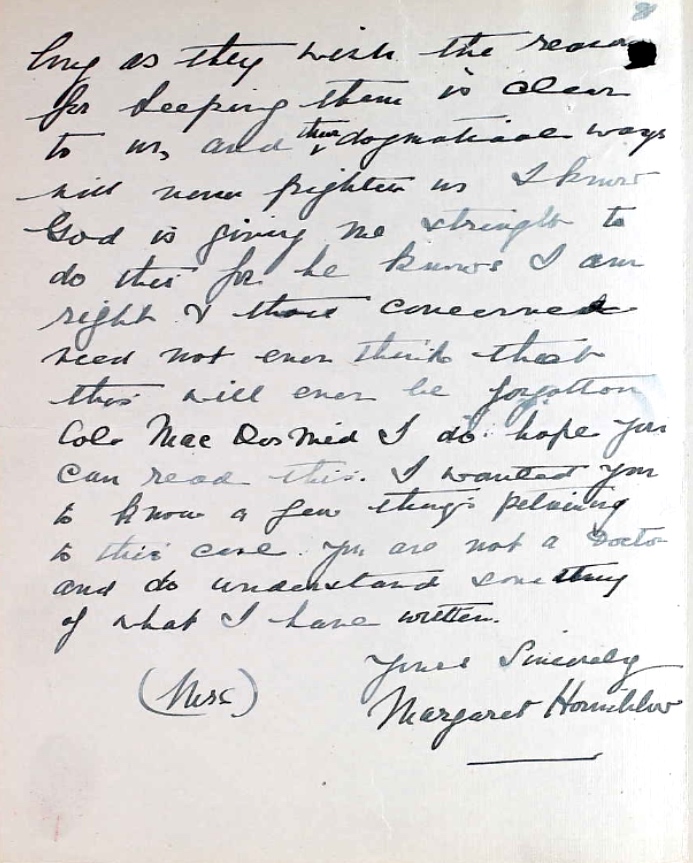 8
long as they wish the reason
for keeping them is clear
to us, and their dogmatical ways
will never frighten us I know
God is giving me strength to
do this for he knows I am
right & those concerned
need not ever think that
this will ever be forgotten
Col. Mac Dormid I do hope you
can read this. I wanted you
to know a few things pertaining
to this case. You are not a Doctor
and do understand something
of what I have written.
Yours Sincerely
(Mrs)
Margaret Horniblow